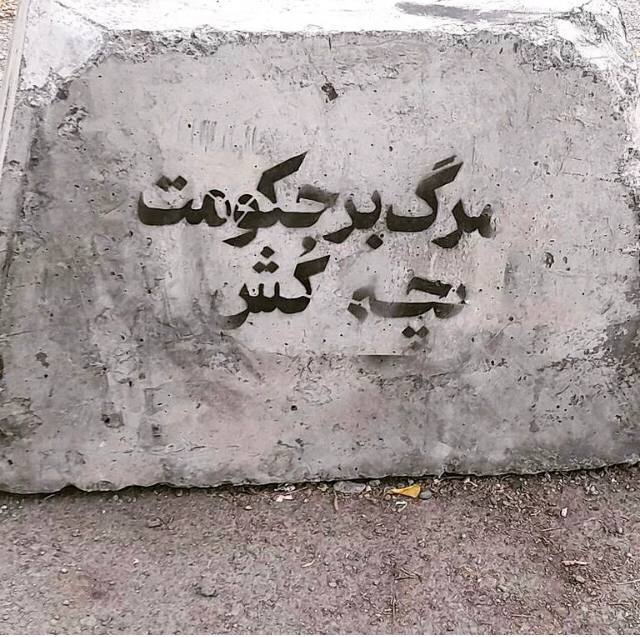 مرگ بر حکومت
بچه کُش